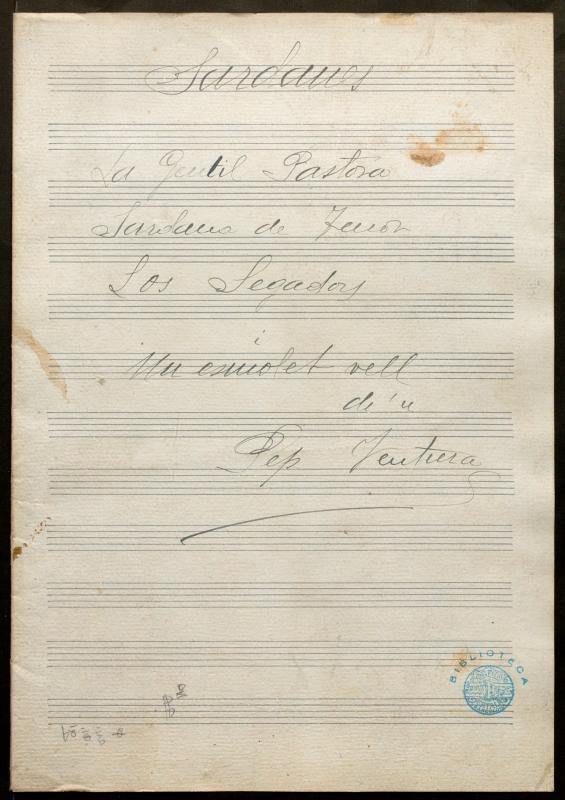 Sardanes
La Gentil Pastora
Sardana de Tenor
Los Segadors
i
Un esmolet vell
de 'n
Pep Ventura
BIBLIOTECA